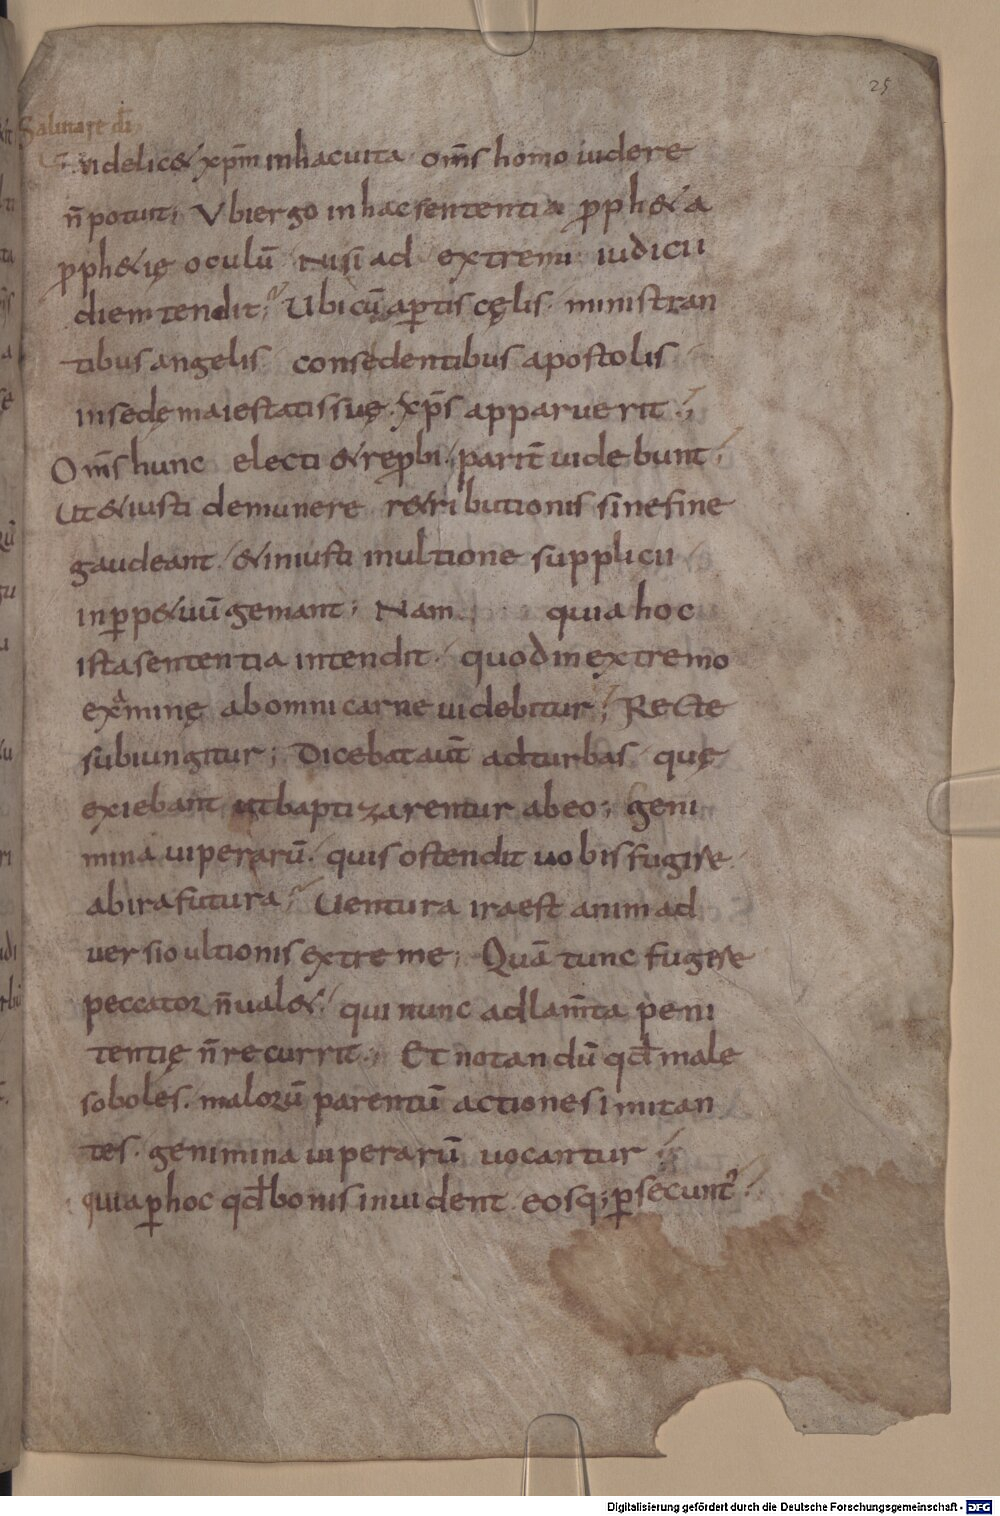 25
Salutare dī
videlic& xp̄m in hac uita om̄s homo uidere
n̄ potuit; Vbi ergo in hac sententia pph&a
pph&ię oculū Nisi ad extremi iudicii
diem tendit; Ubi cū aptis cęlis ministran
tibus angelis consedentibus apostolis
in sede maiestatis suę xp̄s apparuerit;
Om̄s hunc electi & repbi parit̄ uidebunt;
Ut & iusti de munere r&ributionis sine fine
gaudeant & iniusti in ultione supplicii
in pp&uū gemant; Nam quia hoc
ista sententia intendit quod in extremo
examinę ab omni carne uidebitur; Recte
subiungitur; Dicebat aut̄ ad turbas quę
exiebant ut baptizarentur ab eo; geni
mina uiperarū quis ostendit uobis fugire
ab ira futura; Uentura ira est animad
uersio ultionis extreme; Quā tunc fugere
peccator n̄ ual& qui nunc ad lam̄ta peni
tentię n̄ recurrit; Et notandū qđ male
soboles. malorū parentū actiones imitan
tes. genimina uiperarū uocantur;
quia p hoc qđ bonis inuident eosq; psecunt᷒
Digitalisierung gefördert durch die Deutsche Forschungsgemeinschaft - DFG